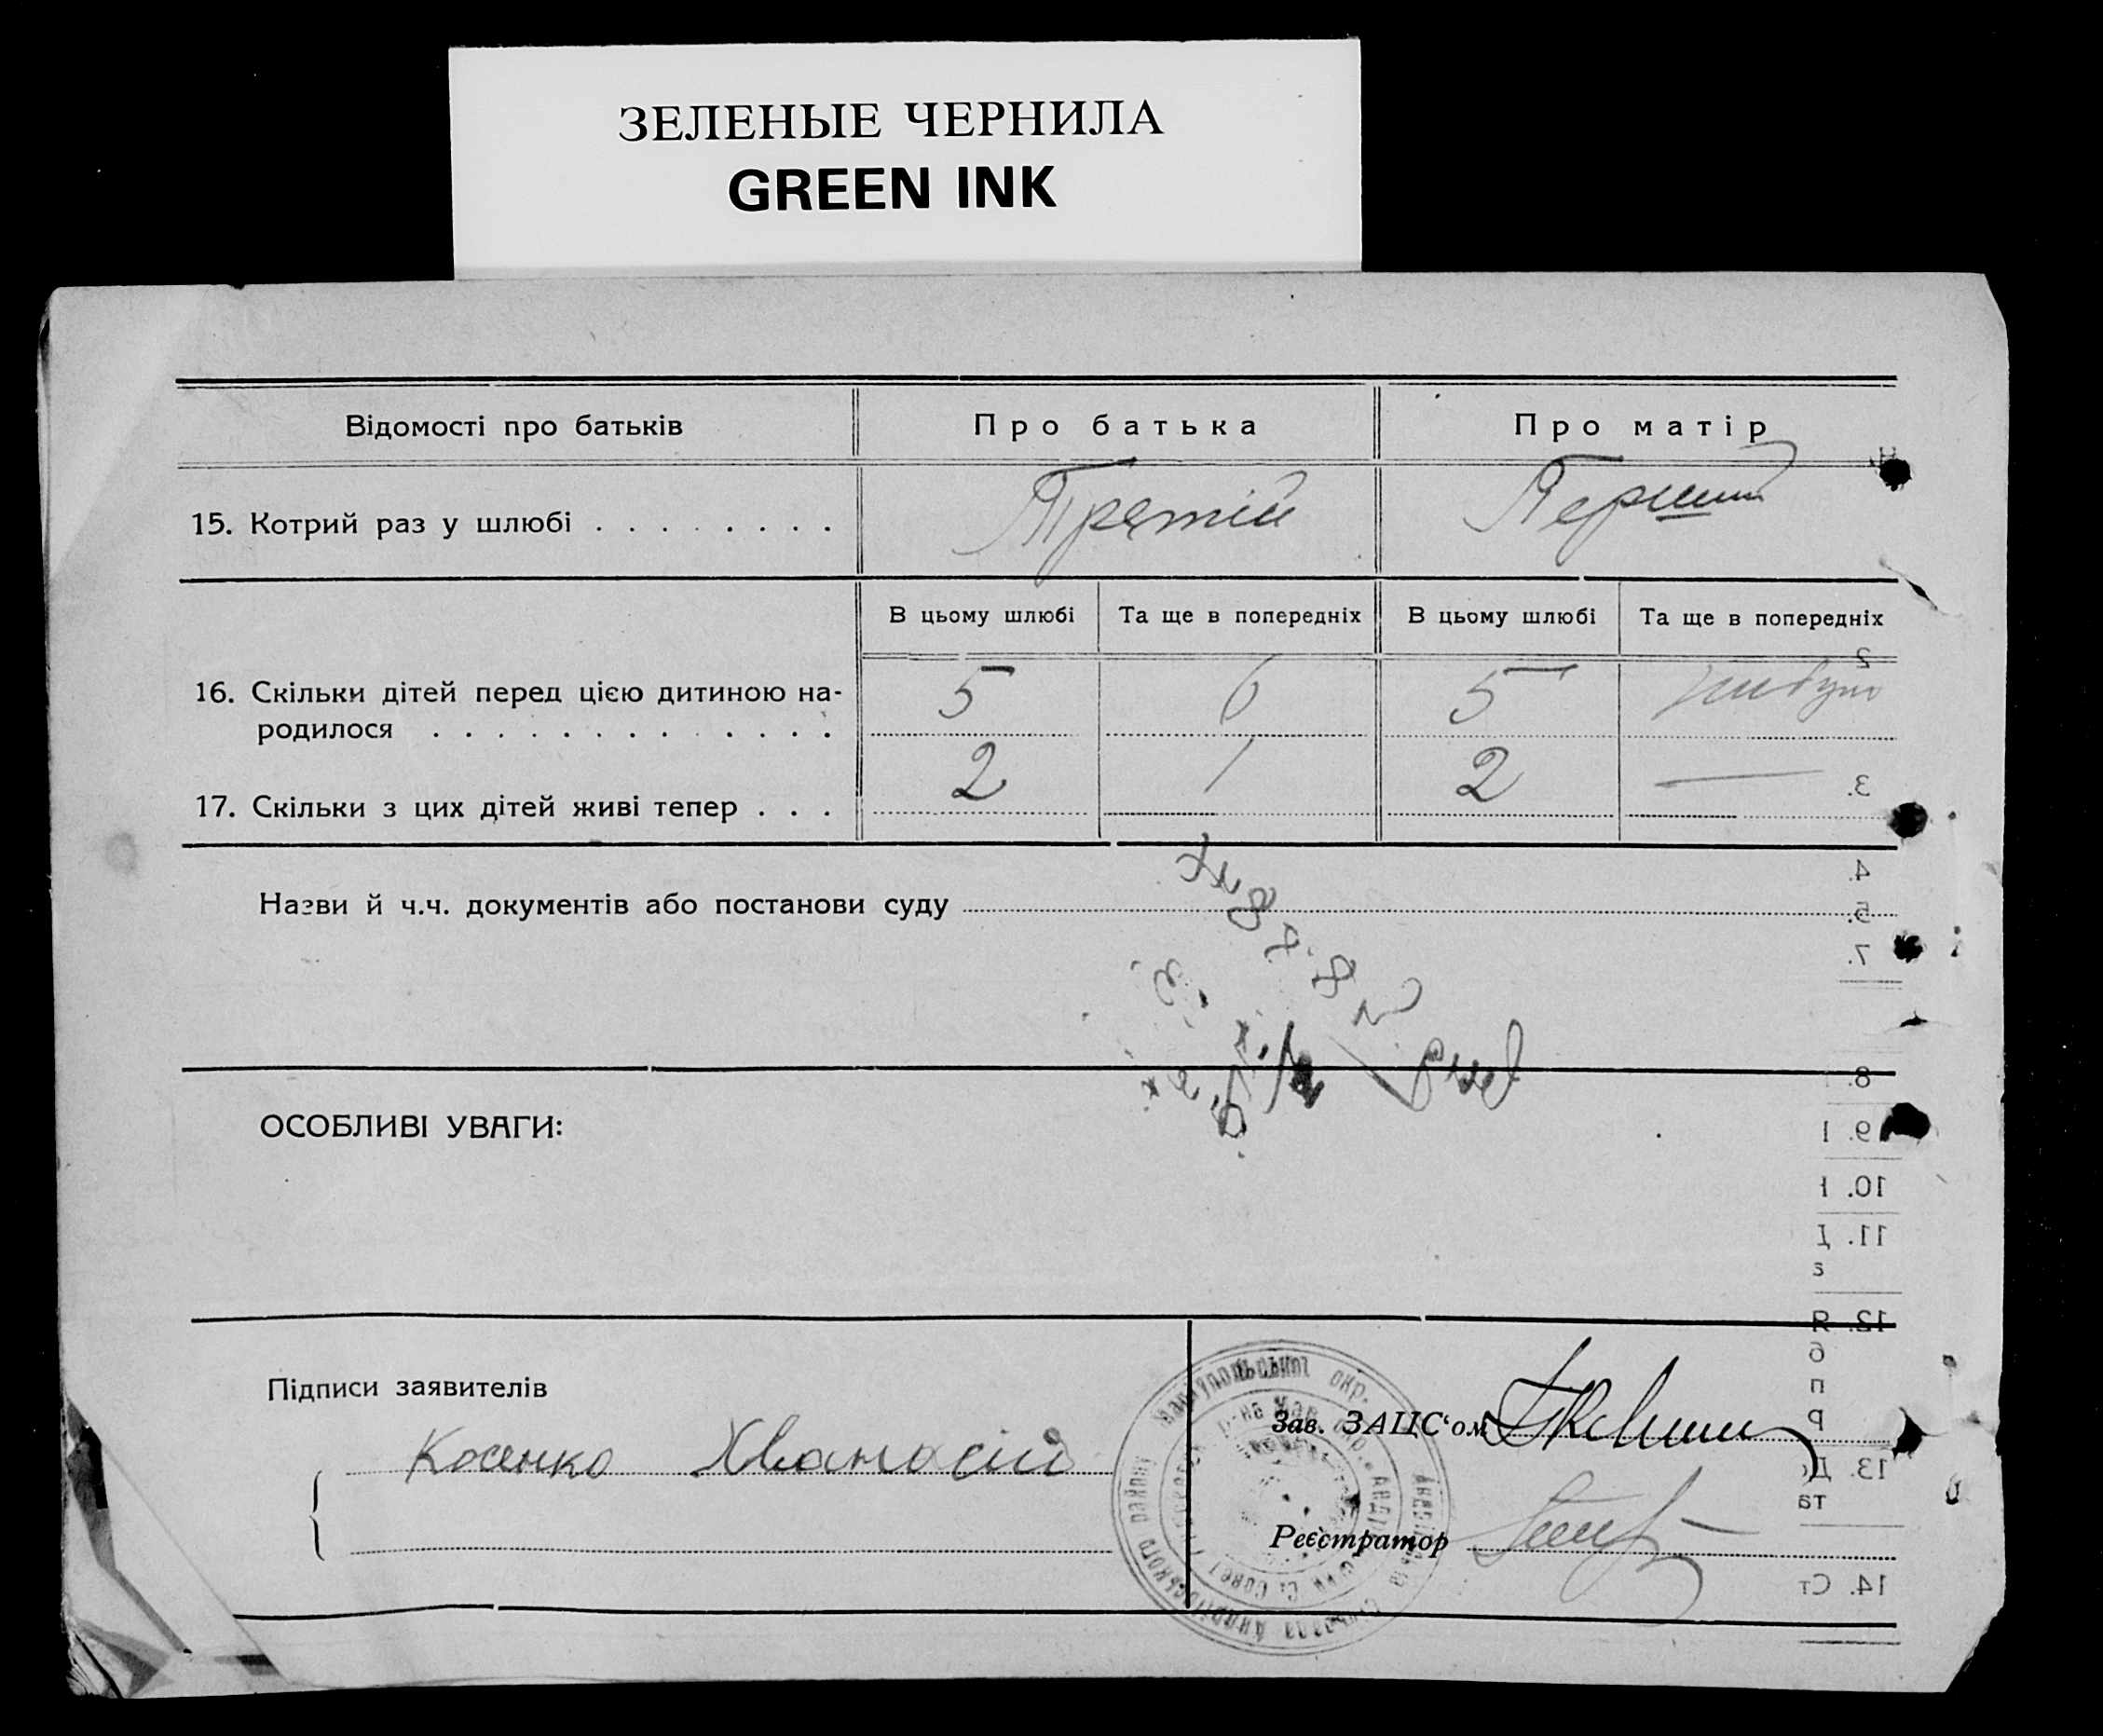 ЗЕЛЕНЫЕ ЧЕРНИЛА
GREEN INK
Відомості про батьків Про батька Про матір
15. Котрий раз у шлюбі . . . . . . . . Третій Перший
В цьому шлюбі Та ще в попередніх В цьому шлюбі Та ще в попередніх
16. Скільки дітей перед цією дитиною на-
родилося . . . . . . . . . . . . . 5 6 5
17. Скільки з цих дітей живі тепер . . . 2 1 2 —
Назви й ч.ч. документів або постанови суду
ОСОБЛИВІ УВАГИ:
Підписи заявителів
Косенко Хванасій
Зав. ЗАЦС‘ом
Реєстратор